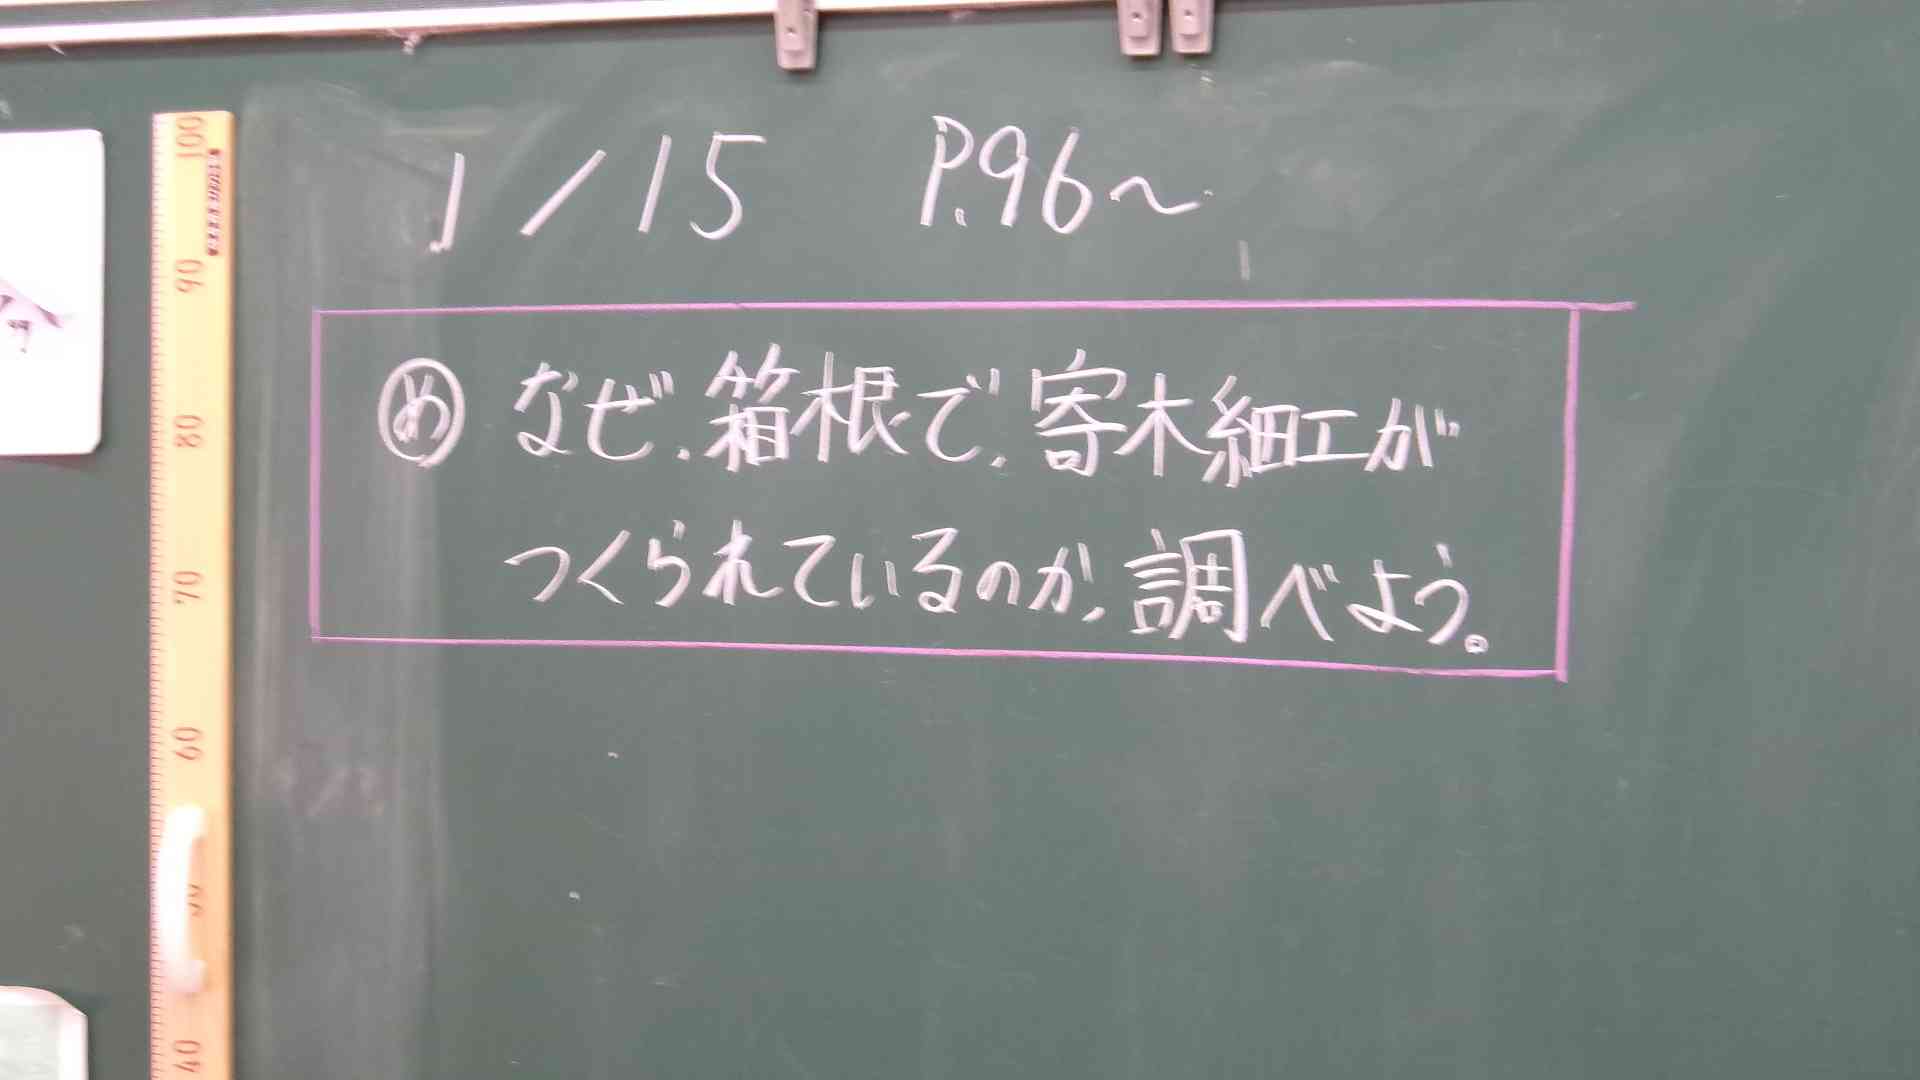 1/15 P.96~
め なぜ、箱根で、寄木細工が
つくられているのか、調べよう。
100
90
80
70
60
40